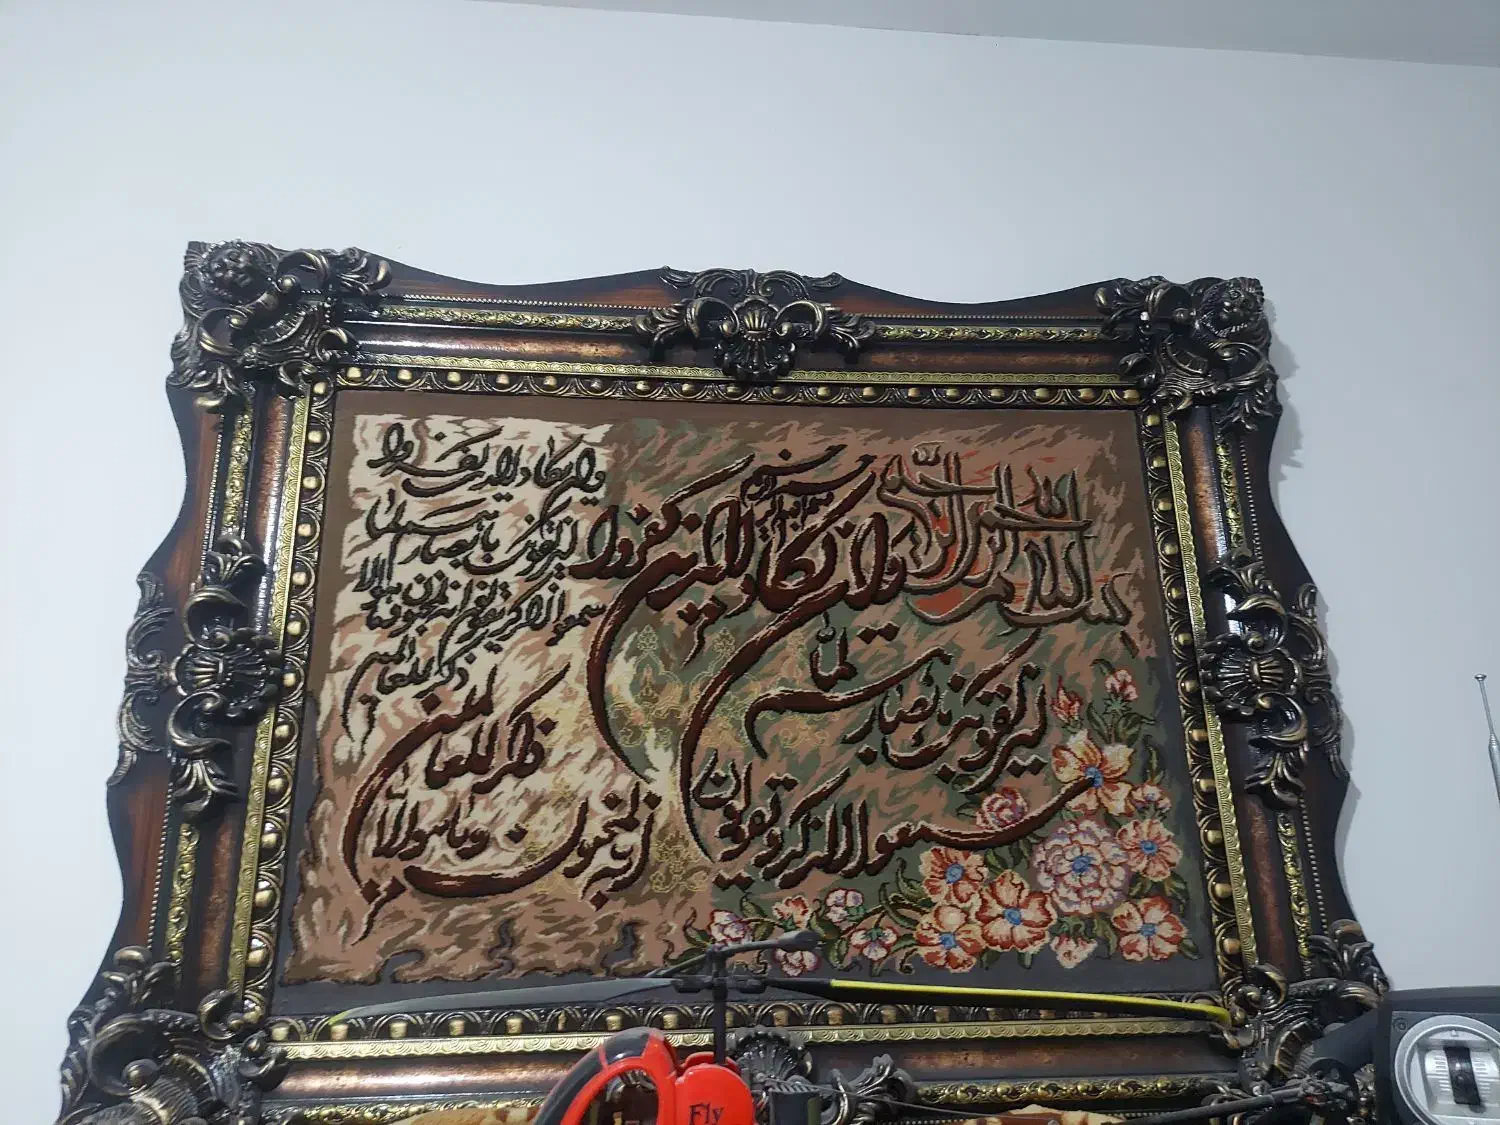 بسم الله الرحمن الرحیم
وان یکاد الذین کفروا
لیزلقونک بابصارهم لما
سمعوا الذکر و یقولون
انه لمجنون و ما هو الا
ذکر للعالمین
وان یکاد الذین کفروا
لیزلقونک بابصارهم لما
سمعوا الذکر و یقولون انه لمجنون و ما هو الا
ذکر للعالمین
Fly